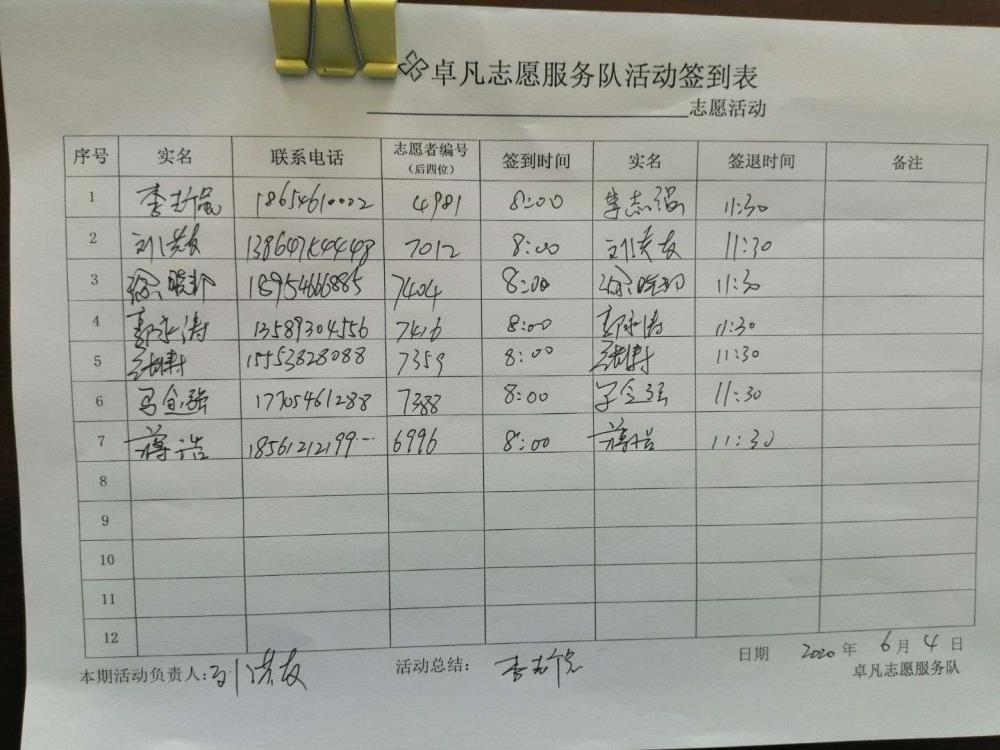 卓凡志愿服务队活动签到表
志愿活动
序号 实名 联系电话 志愿者编号（后四位） 签到时间 实名 签退时间 备注
1 李志强 18654610002 4981 8:00 李志强 11:30
2 刘洪友 7012 8:00 刘洪友 11:30
3 18954666885 7404 8:00 11:30
4 郭永涛 13589304556 7416 8:00 郭永涛 11:30
5 15553828088 7359 8:00 11:30
6 马金强 17705461288 7388 8:00 马金强 11:30
7 蒋浩 18561212199 6996 8:00 蒋浩 11:30
8
9
10
11
12
本期活动负责人:刘洪友 活动总结: 李志强 日期 2020 年 6 月 4 日
卓凡志愿服务队